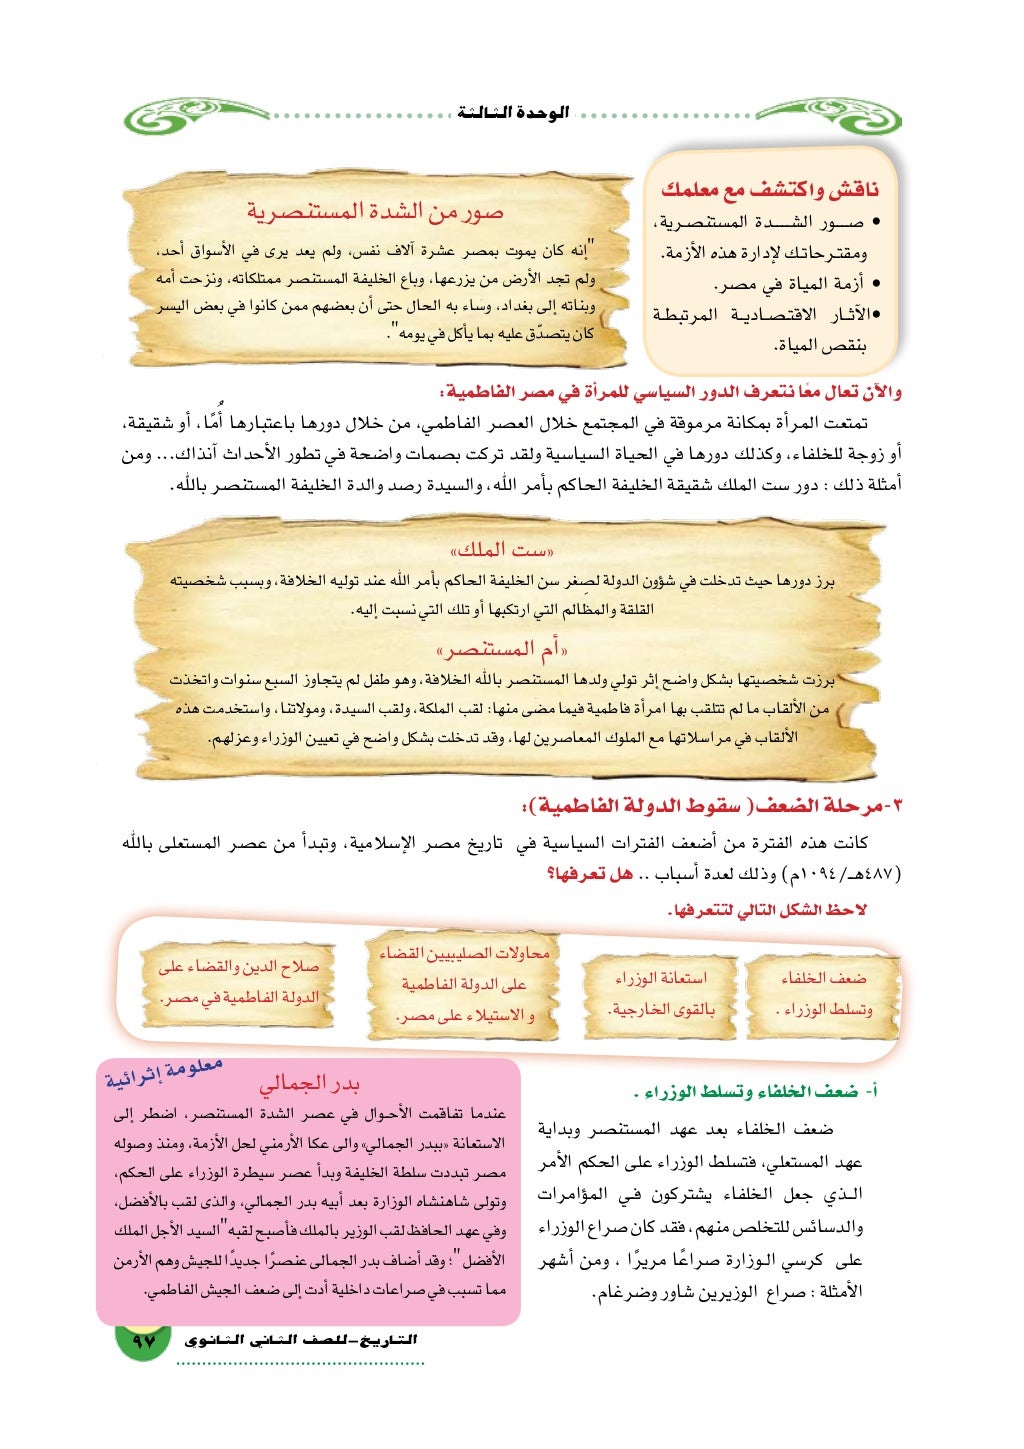 الوحدة الثالثة
ناقش واكتشف مع معلمك
• صـــور الشـــدة المستنصرية،
ومقترحاتك لإدارة هذه الأزمة.
• أزمة المياة في مصر.
•الآثـار الاقتصاديـة المرتبطـة
بنقص المياة.
صور من الشدة المستنصرية
"إنه كان يموت بمصر عشرة آلاف نفس، ولم يعد يرى في الأسواق أحد،
ولم تجد الأرض من يزرعها، وباع الخليفة المستنصر ممتلكاته، ونزحت أمه
وبناته إلى بغداد، وساء به الحال حتى أن بعضهم ممن كانوا في بعض اليسر
كان يتصدّق عليه بما يأكل في يومه".
والآن تعال معًا نتعرف الدور السياسي للمرأة في مصر الفاطمية:
تمتعت المرأة بمكانة مرموقة في المجتمع خلال العصر الفاطمي، من خلال دورها باعتبارها أُمًا، أو شقيقة،
أو زوجة للخلفاء، وكذلك دورها في الحياة السياسية ولقد تركت بصمات واضحة في تطور الأحداث آنذاك... ومن
أمثلة ذلك : دور ست الملك شقيقة الخليفة الحاكم بأمر الله، والسيدة رصد والدة الخليفة المستنصر بالله.
«ست الملك»
برز دورها حيث تدخلت في شؤون الدولة لصِغر سن الخليفة الحاكم بأمر الله عند توليه الخلافة، وبسبب شخصيته
القلقة والمظالم التي ارتكبها أو تلك التي نسبت إليه.
«أم المستنصر»
برزت شخصيتها بشكل واضح إثر تولي ولدها المستنصر بالله الخلافة، وهو طفل لم يتجاوز السبع سنوات واتخذت
من الألقاب ما لم تتلقب بها امرأة فاطمية فيما مضى منها: لقب الملكة، ولقب السيدة، ومولاتنا، واستخدمت هذه
الألقاب في مراسلاتها مع الملوك المعاصرين لها، وقد تدخلت بشكل واضح في تعيين الوزراء وعزلهم.
٣-مرحلة الضعف( سقوط الدولة الفاطمية):
كانت هذه الفترة من أضعف الفترات السياسية في تاريخ مصر الإسلامية، وتبدأ من عصر المستعلى بالله
(٤٨٧هـ/١٠٩٤م) وذلك لعدة أسباب .. هل تعرفها؟
لاحظ الشكل التالي لتتعرفها.
ضعف الخلفاء
وتسلط الوزراء .
استعانة الوزراء
بالقوى الخارجية.
محاولات الصليبيين القضاء
على الدولة الفاطمية
و الاستيلاء على مصر.
صلاح الدين والقضاء على
الدولة الفاطمية في مصر.
أ- ضعف الخلفاء وتسلط الوزراء .
ضعف الخلفاء بعد عهد المستنصر وبداية
عهد المستعلي، فتسلط الوزراء على الحكم الأمر
الـذي جعل الخلفاء يشتركون فـي المؤامرات
والدسائس للتخلص منهم، فقد كان صراع الوزراء
على كرسي الـوزارة صراعًا مريرًا ، ومن أشهر
الأمثلة : صراع الوزيرين شاور وضرغام.
معلومة إثرائية
بدر الجمالي
عندما تفاقمت الأحـوال في عصر الشدة المستنصر، اضطر إلى
الاستعانة «ببدر الجمالي» والى عكا الأرمني لحل الأزمة، ومنذ وصوله
مصر تبددت سلطة الخليفة وبدأ عصر سيطرة الوزراء على الحكم،
وتولى شاهنشاه الوزارة بعد أبيه بدر الجمالي، والذى لقب بالأفضل،
وفي عهد الحافظ لقب الوزير بالملك فأصبح لقبه"السيد الأجل الملك
الأفضل "؛ وقد أضاف بدر الجمالى عنصرًا جديدًا للجيش وهم الأرمن
مما تسبب في صراعات داخلية أدت إلى ضعف الجيش الفاطمي.
التاريخ-للصف الثاني الثانوي
٩٧